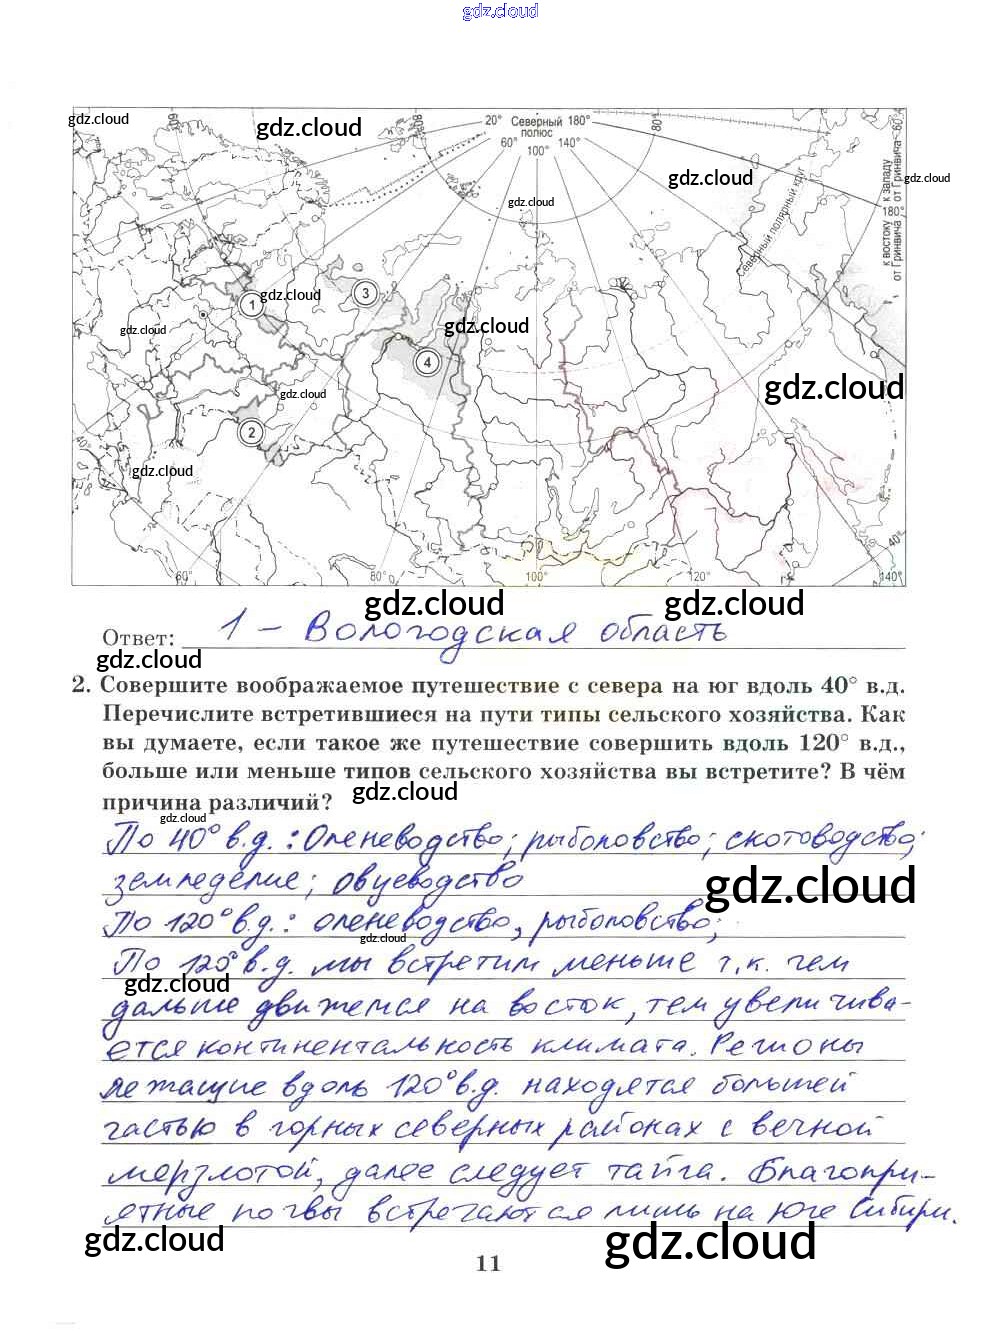 gdz.cloud
gdz.cloud
60
gdz.cloud
80°
20° Северный 180°
полюс
60° 140°
100°
80°
gdz.cloud
gdz.cloud
gdz.cloud
Северный полярный круг
к востоку к западу
от Гринвича от Гринвича
60°
180°
1
gdz.cloud
3
gdz.cloud
gdz.cloud
4
gdz.cloud
gdz.cloud
2
40°
gdz.cloud
40°
60°
80°
100°
120°
140°
gdz.cloud
gdz.cloud
Ответ: 1 - Вологодская область
gdz.cloud
2. Совершите воображаемое путешествие с севера на юг вдоль 40° в.д.
Перечислите встретившиеся на пути типы сельского хозяйства. Как
вы думаете, если такое же путешествие совершить вдоль 120° в.д.,
больше или меньше типов сельского хозяйства вы встретите? В чём
причина различий?
gdz.cloud
gdz.cloud
По 40° в.д.: Оленеводство; рыболовство; скотоводство;
земледелие; овцеводство
gdz.cloud
По 120° в.д.: оленеводство, рыболовство;
gdz.cloud
По 120° в.д. мы встретим меньше т.к. чем
gdz.cloud
дальше движемся на восток, тем увеличива-
ется континентальность климата. Регионы
лежащие вдоль 120° в.д. находятся большей
частью в горных северных районах с вечной
мерзлотой, далее следует тайга. Благопри-
ятные почвы встречаются лишь на юге Сибири.
gdz.cloud
gdz.cloud
11